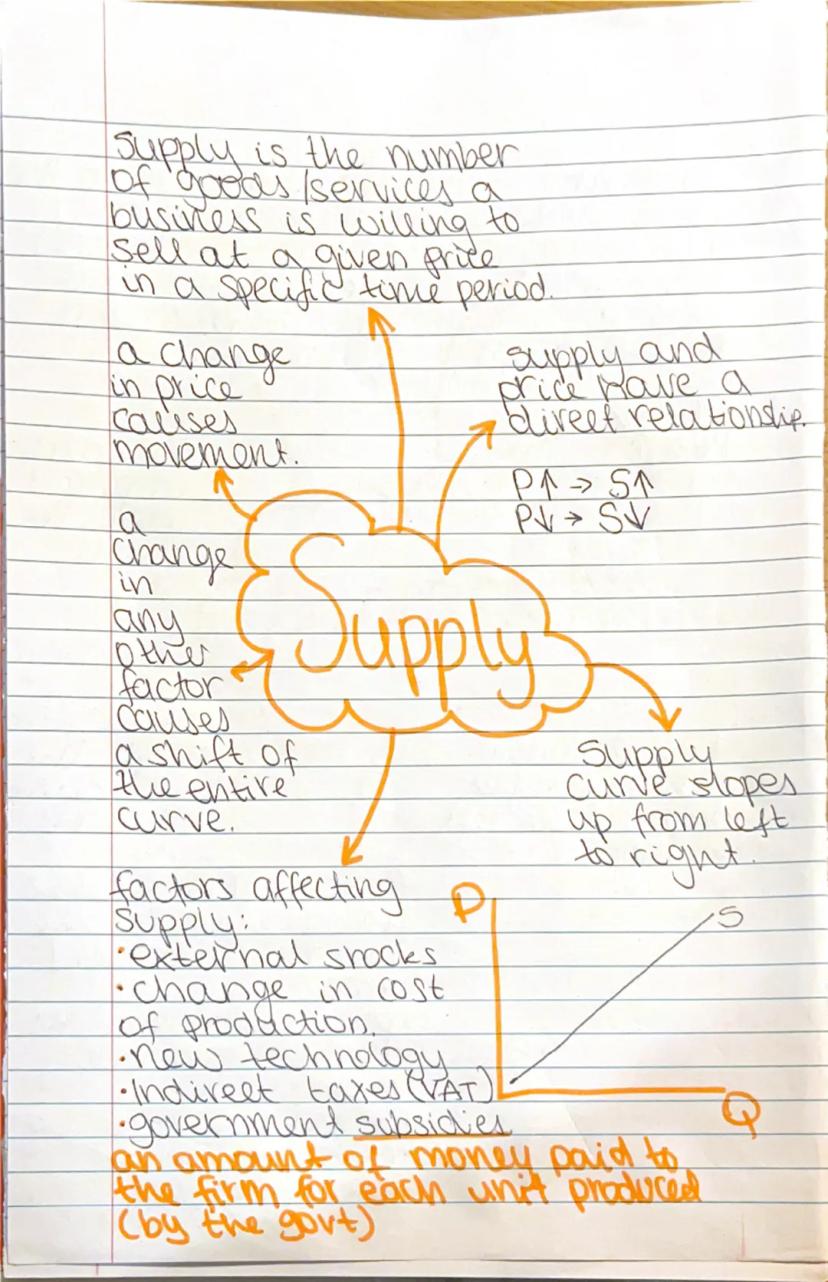 Supply is the number
of goods/services a
business is willing to
sell at a given price
in a specific time period.
a change
in price
causes
movement.
supply and
price have a
direct relationship.
P↑ → S↑
P↓ → S↓
a
change
in
any
other
factor
causes
a shift of
the entire
curve.
Supply
Supply
curve slopes
up from left
to right.
factors affecting
supply:
•external shocks
•change in cost
of production.
•new technology
•Indirect taxes (VAT)
•government subsidies
an amount of money paid to
the firm for each unit produced
(by the govt)
P
S
Q